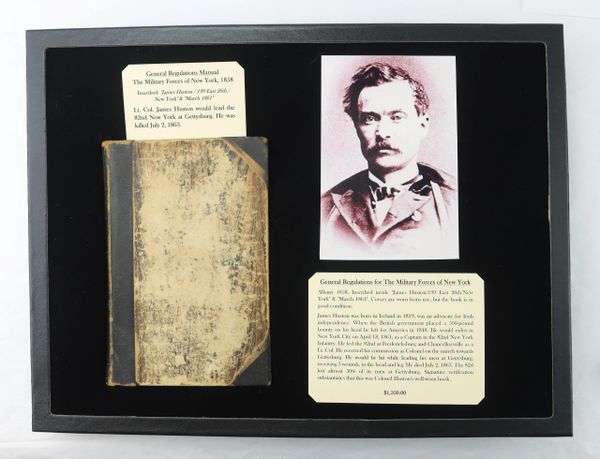 General Regulations Manual
The Military Forces of New York, 1858
Inscribed: 'James Huston / 199 East 26th /
New York' & 'March 1861'
Lt. Col. James Huston would lead the
82nd New York at Gettysburg. He was
killed July 2, 1863.
General Regulations for The Military Forces of New York
Albany 1858. Inscribed inside 'James Huston/199 East 26th/New
York' & 'March 1861'. Covers are worn from use, but the book is in
good condition.
James Huston was born in Ireland in 1819, was an advocate for Irish
independence. When the British government placed a 500-pound
bounty on his head he left for America in 1848. He would enlist in
New York City on April 18, 1861, as a Captain in the 82nd New York
Infantry. He led the 82nd at Fredericksburg and Chancellorsville as a
Lt. Col. He received his commission as Colonel on the march towards
Gettysburg. He would be hit while leading his men at Gettysburg,
receiving 3 wounds, to the head and leg. He died July 2, 1863. The 82d
lost almost 50% of its men at Gettysburg. Signature verification
substantiates that this was Colonel Huston's well-worn book.